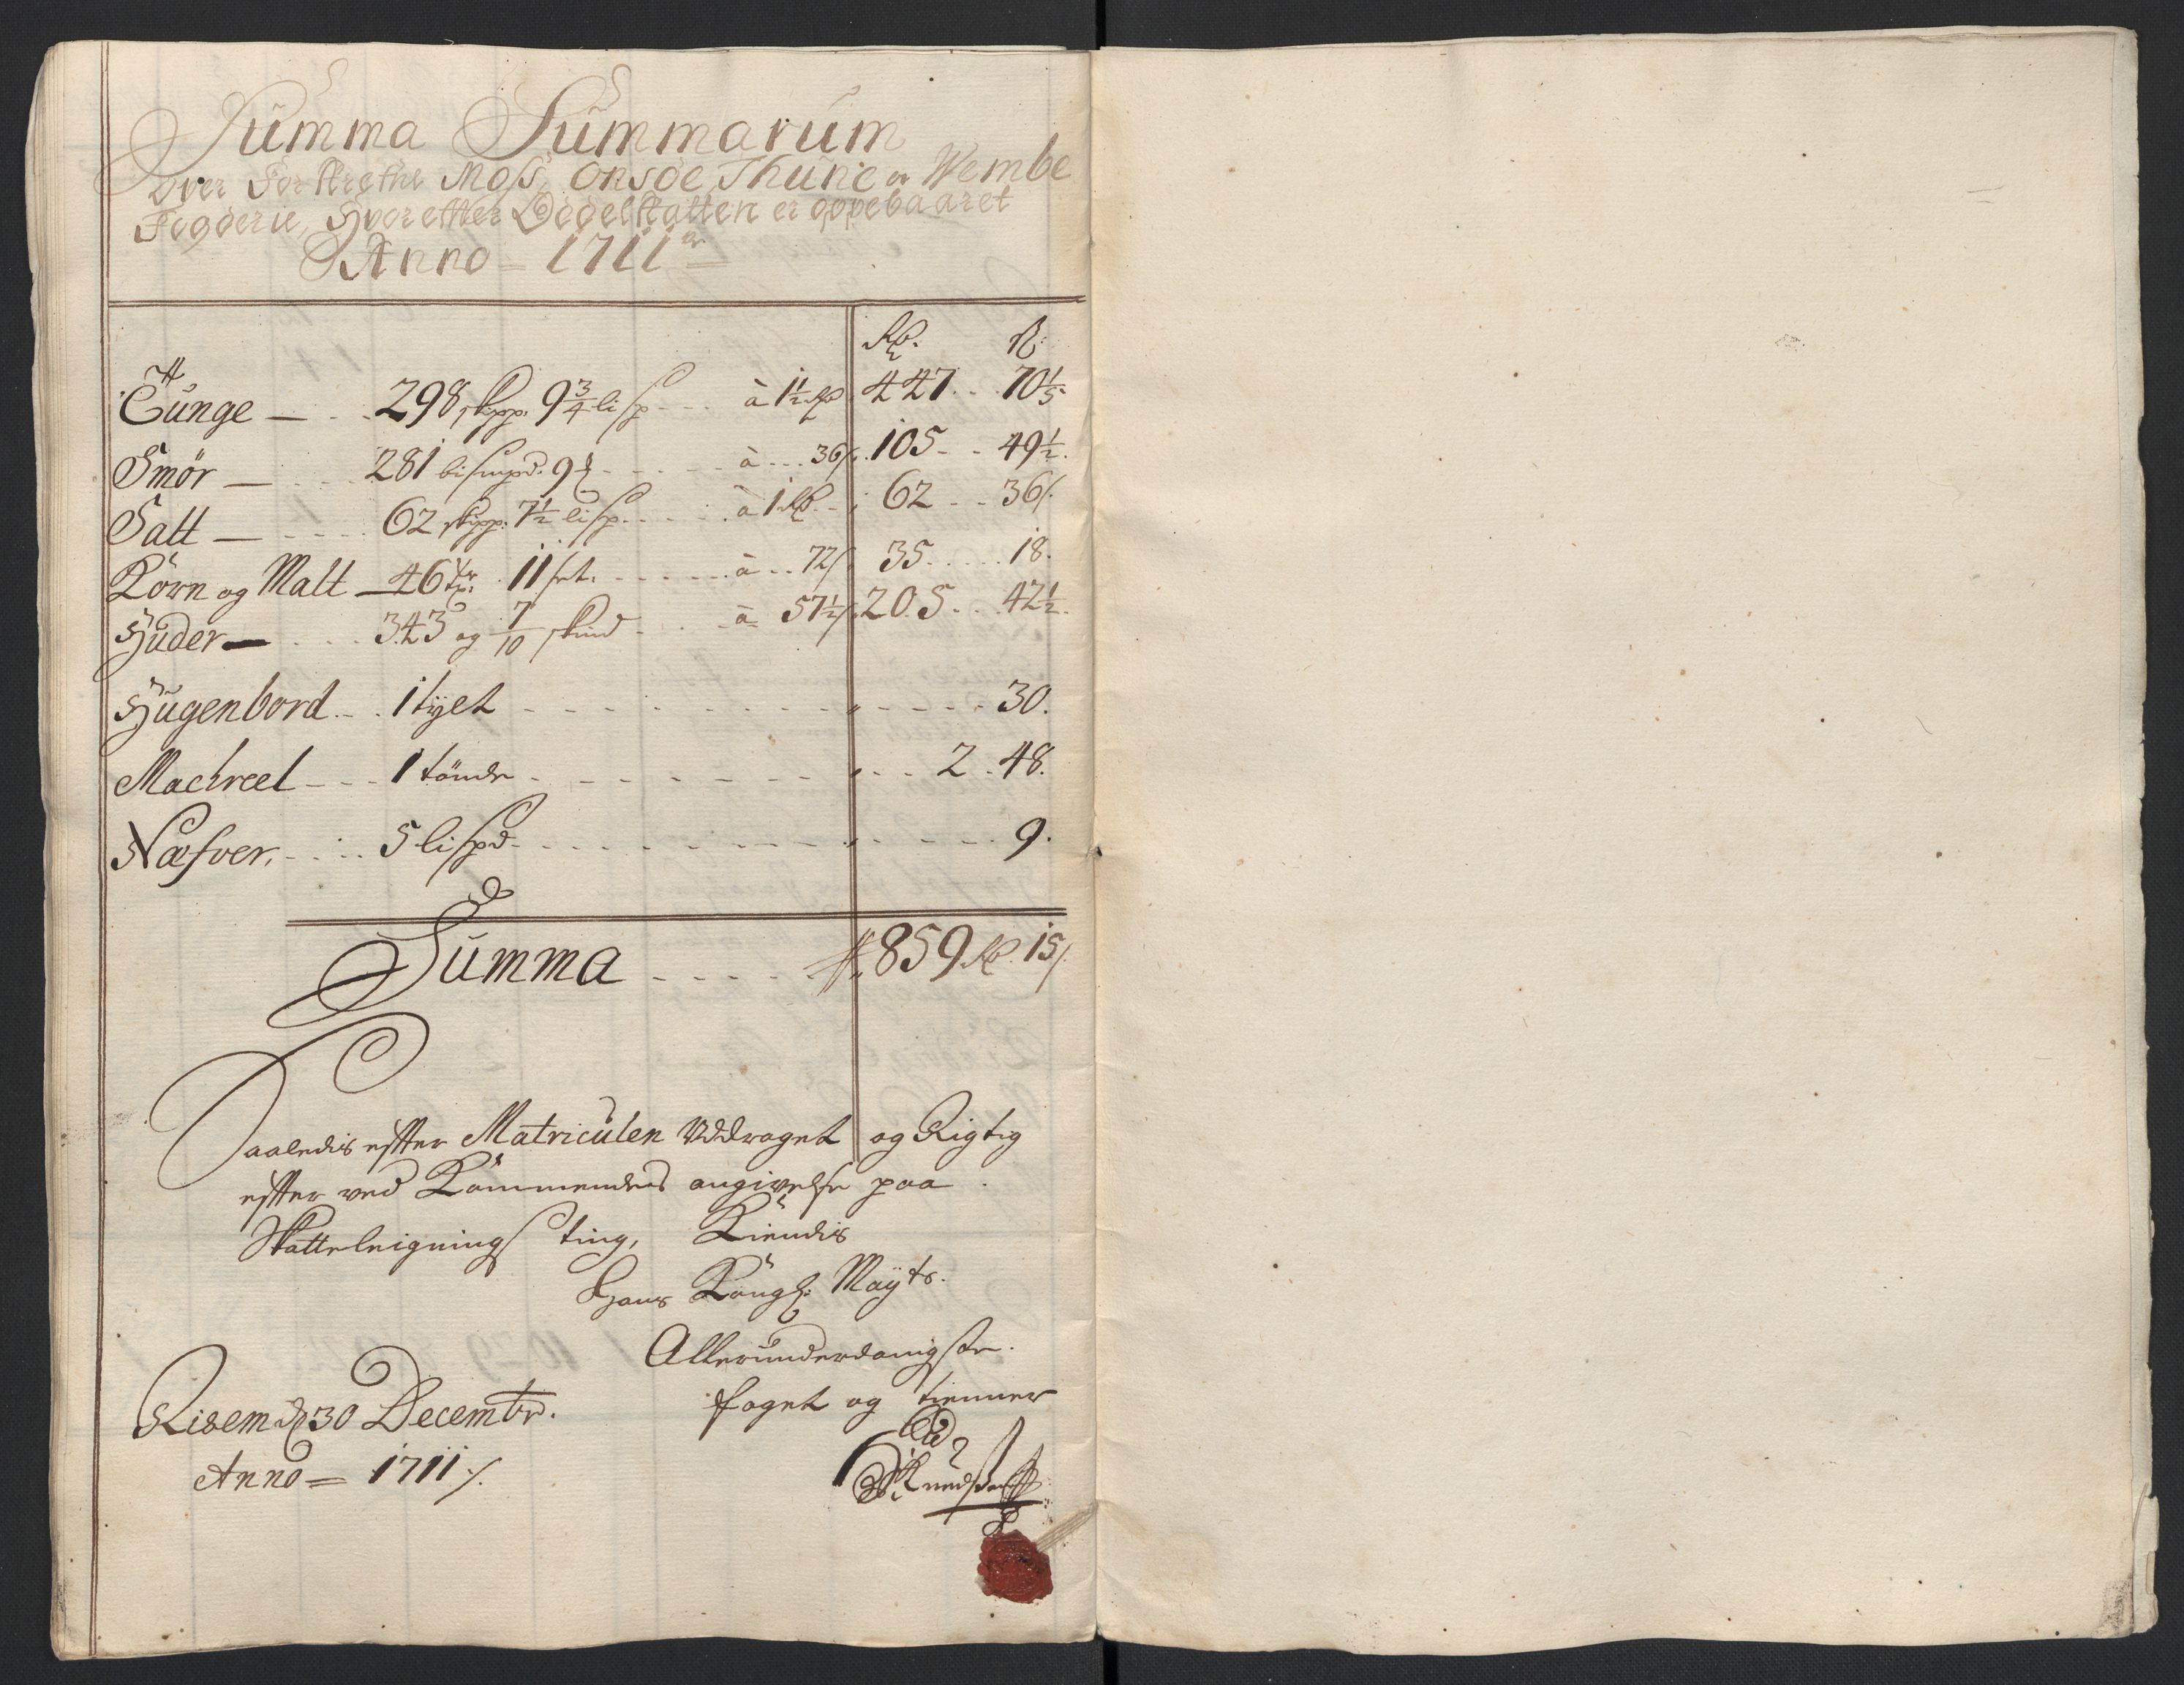 Summa Summarum
over Forskrefne Moss, Onsöe, Thune og Wembe
Fogderie, Hvorefter Odelskatten er oppebaaret
Anno 1711
Rd. s:
Tunge 298 skipp. 9¾ lisp à 1½ Rd 447 70 1/5
Smör 281 bismpd. 9 à 36 s 105 49½
Salt 62 skipp. 7½ lisp. à 1 Rd. 62 36 s.
Korn og Malt 46 tr. 11 set. à 72 s 35 18.
Huder 343 og 7/10 skind à 57½ s 205 42½
Hugenbord 1 tylt 30.
Machreel 1 tönde 2 48.
Næfver. 5 lispd 9.
Summa 859 Rd. 15 s.
Saaledis efter Matriculen Uddraget og Rigtig
efter ved Kommendes angivelse paa
Skatteleignings ting, Kiendis
Hans Kongl: Mayts.
Allerunderdanigste
foget og tienner
Risem d 30 Decembr.
Anno 1711 /.